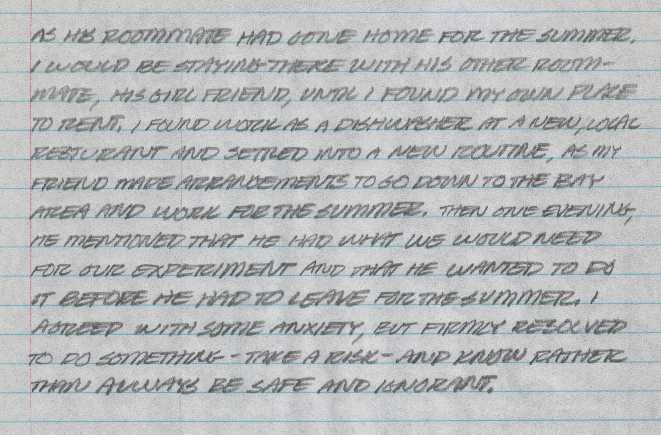 AS HIS ROOTMMATE HAD GONE HOME FOR THE SUMMER.
I WOULD BE STAYING THERE WITH HIS OTHER ROOM-
MATE, HIS GIRL FRIEND, UNTIL I FOUND MY OWN PLACE
TO RENT. I FOUND WORK AS A DISHWASHER AT A NEW, LOCAL
RESTURANT AND SETTLED INTO A NEW ROUTINE, AS MY
FRIEND MADE ARRANGEMENTS TO GO DOWN TO THE BAY
AREA AND WORK FOR THE SUMMER. THEN ONE EVENING,
HE MENTIONED THAT HE HAD WHAT WE WOULD NEED
FOR OUR EXPERIMENT AND THAT HE WANTED TO DO
IT BEFORE HE HAD TO LEAVE FOR THE SUMMER. I
AGREED WITH SOME ANXIETY, BUT FIRMLY RESOLVED
TO DO SOMETHING - TAKE A RISK - AND KNOW RATHER
THAN ALWAYS BE SAFE AND IGNORANT.